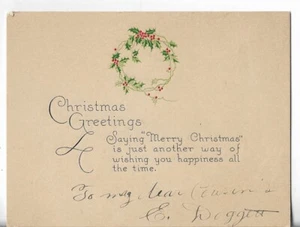 Christmas
Greetings
Saying "Merry Christmas"
is just another way of
wishing you happiness all
the time.
To my dear Cousin's
E. Doggett